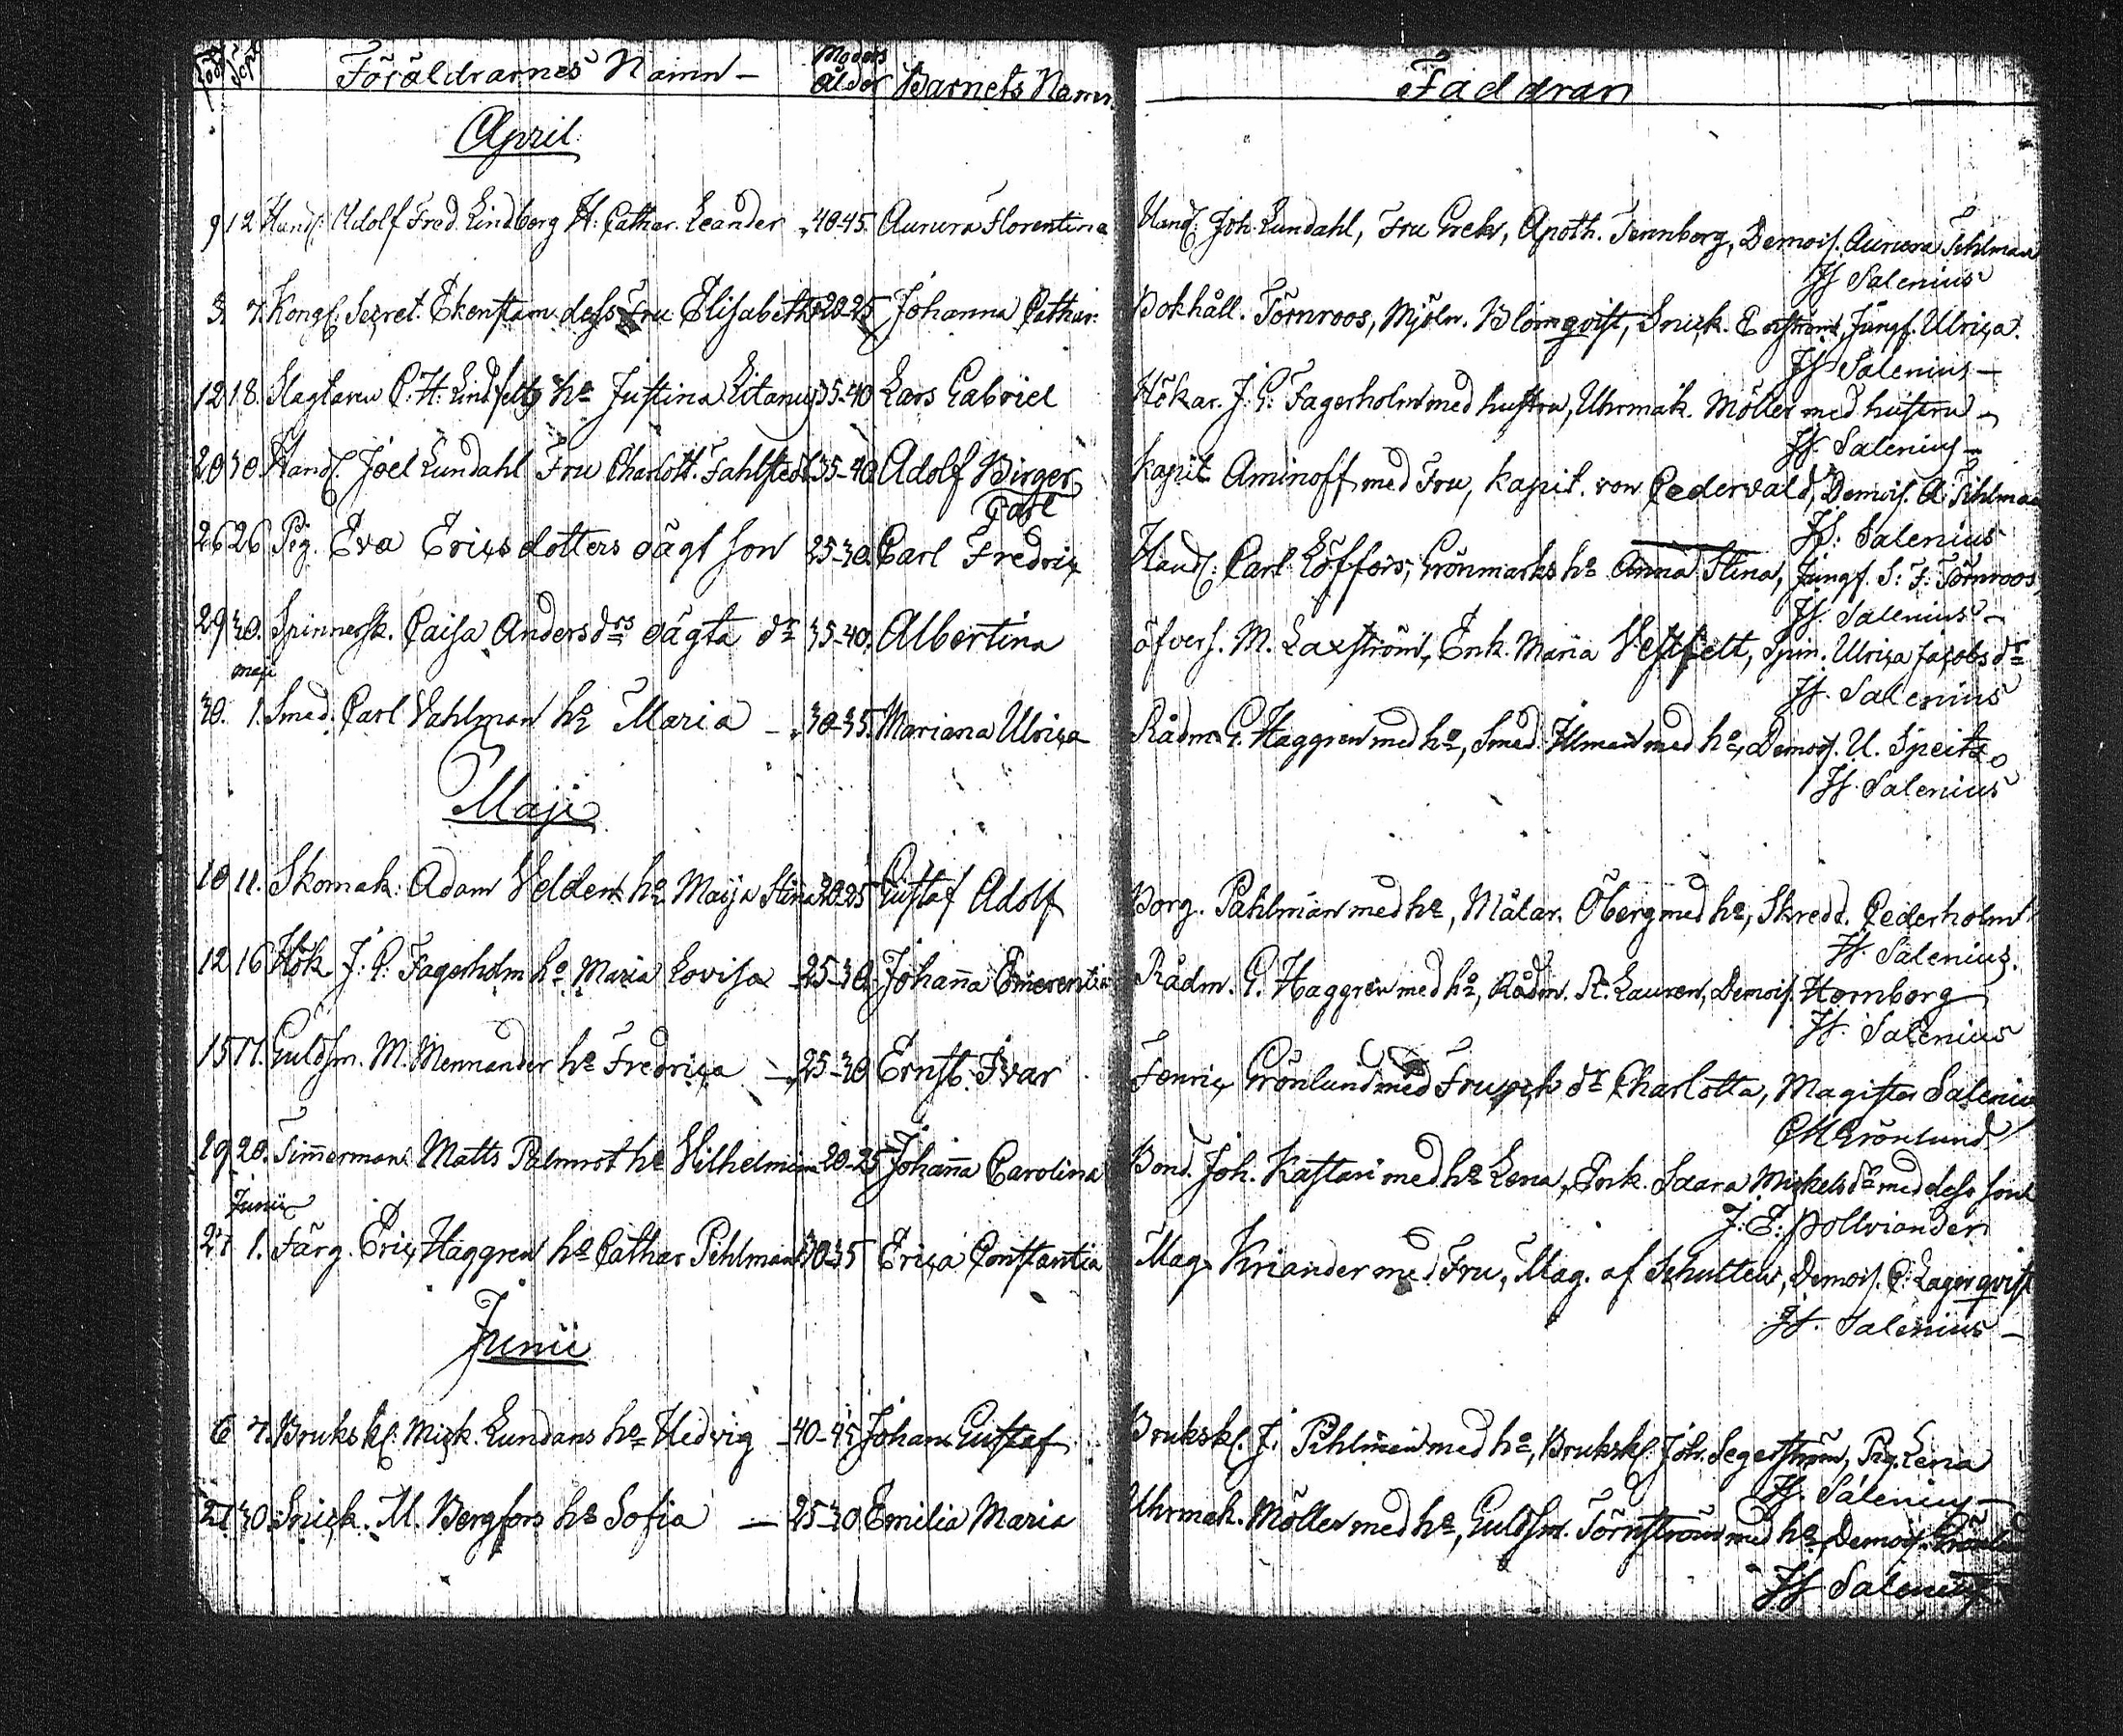 Född Döpt Föräldrarnes Namn – Moders Ålder Barnets Namn Faddrar
April
9 12 Handl: Adolf Fred. Lindberg H. Cathar. Leander 40-45 Aurora Florentina Handl. Joh. Lundahl, Fru Apoth. Tennberg, Demois. Aurora Pihlman
JJ Salenius
3 7. Kongl. Secret. Ekenstam dess Fru Elisabeth 20-25 Johanna Cathar. Bokhåll. Törnroos, Mjöln. Blomqvist, Snick. Jungf. Ulrica.
JJ Salenius –
12 18. Slagtaren C. H. hº Justina 35-40 Lars Gabriel Hökar. J. C. Fagerholm med hustru, Uhrmak. Möller med hustru –
JJ. Salenius –
20 30 Handl. Joel Lundahl Fru Charlott. Fahlstedt 35-40 Adolf Birger Kapit. Aminoff med Fru, Kapit. von Cedervald, Demois. A. Pihlman
JJ: Salenius
26 26 Pig. Eva Ericsdotters oägt son 25-30. Carl Fredric Handl: Carl Löffors, Grönmarks hº Anna Stina, Jungf. S: F: Törnroos
JJ Salenius –
29 30. Spinnersk. Caisa Andersdrs oägta dr 35-40. Albertina öfvers. M. Laxström, Enk. Maria Vestfelt, Spin. Ulrica Jacobsdr
maji JJ. Salenius
30. 1. Smed. Carl Vahlman hº Maria – 30-35. Mariana Ulrica Rådm. G. Haggren med hº, Smed. Ilman med hº, Demois. U. Speitz
JJ. Salenius
Maji
10 11. Skomak: Adam hº Maija Stina 20-25 Gustaf Adolf Borg. Pahlman med hº, Målar. Öberg med hº, Skredd. Cederholm
JJ. Salenius.
12 16 Hök. J: C: Fagerholm hº Maria Lovisa 25-30. Johanna Emerentia Rådm. G. Haggren med hº, Rådm. R. Lauren, Demois. Hornborg
JJ. Salenius
15 17. Guldsm. M. Mennander hº Fredrica – 25-30 Ernst Ivar Fenric Grönlund med Fru och dr Charlotta, Magister Salenius
CM Grönlund
19 20. Timmerman. Matts Palmrot hº Vilhelmina 20-25 Johanna Carolina Bond. Joh. Kastari med hº Lena, Enk. Saara Mickelsdr med dess son
Junii J. E: Pollviander
27 1. Färg. Eric Haggren hº Cathar Pihlman 30-35 Erica Constantia Mag. Kriander med Fru, Mag. af Schultén, Demois. C. Lagerqvist
JJ. Salenius –
Junii
6 7. Brukskl. Mick. Lundans hº Hedvig 40-45 Johan Gustaf Brukskl. J. Pihlman med hº, Brukskl. Joh. Segerström, Pig. Lena
JJ. Salenius –
27 30. Snick. M. Bergfors hº Sofia – 25-30 Emilia Maria Uhrmak. Möller med hº, Guldsm. Törnström med hº, Demois.
JJ Salenius